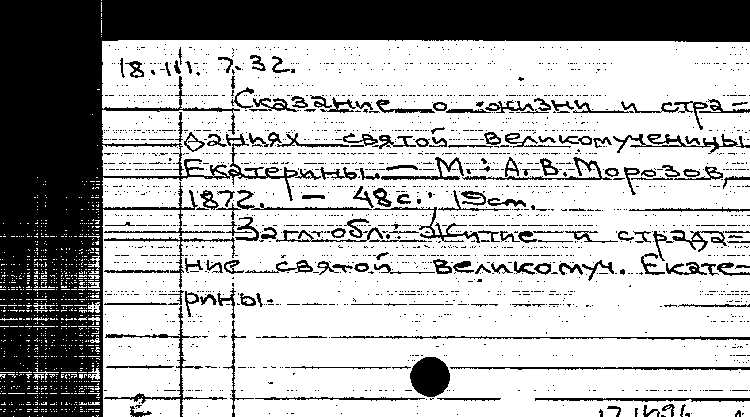 18.III. 7.32.
Сказание о жизни и стра=
даниях святой великомученицы
Екатерины. — М. : А. В. Морозов,
1872. — 48 с.; 19 cm.
Загл. обл.: Житие и страда=
ние святой великомуч. Екате=
рины.